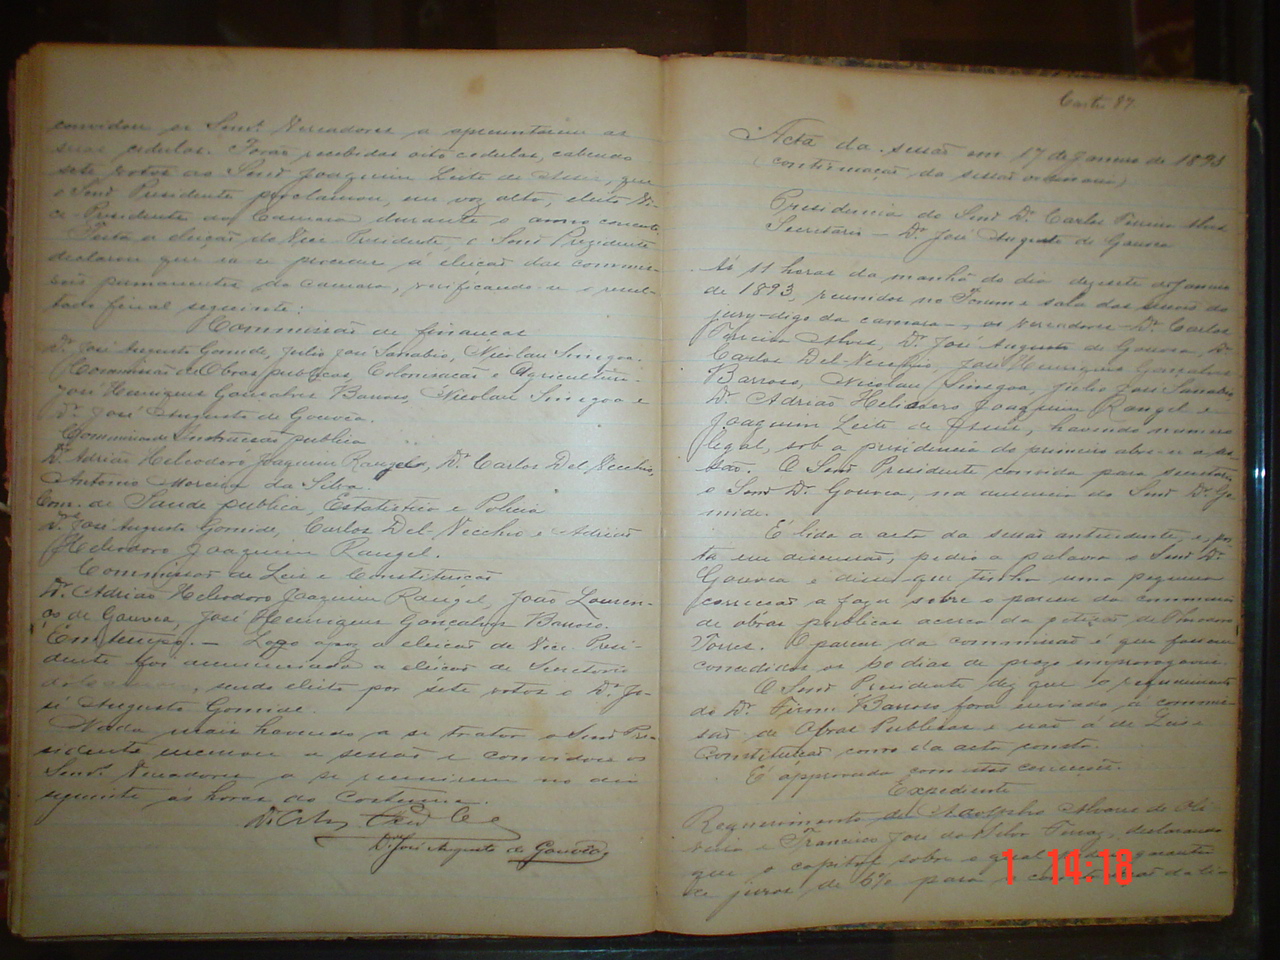 convidou os Senrs. Vereadores a apresentarem as
suas cedulas. Forão recebidas oito cedulas, cabendo
sete votos ao Senr Joaquim Leite de Assis, que
o Senr Presidente proclamou, em voz alta, eleito Vi-
ce-Presidente da Camara durante o anno corrente.
Feita a eleição do Vice Presidente, o Senr Prezidente
declarou que ia-se proceder á eleição das commis-
sões permanentes da camara, verificando-se o resul-
tado final seguinte:
Commissão de finanças
Dr. José Augusto Gomide, Julio José Sanabio, Nicolau
Commissão de Obras publicas, Colonisação e Agricultura
José Henrique Gonsalves Barroso, Nicolau e
Dr. José Augusto de Gouvea.
Commissão de Instrucção publica
Dr. Adrião Heliodoro Joaquim Rangel, Dr. Carlos Del-Vecchio,
Antonio Moreira da Silva.
Com. de Saude publica, Estatistica e Policia
Dr. José Augusto Gomide, Carlos Del-Vecchio e Adrião
Heliodoro Joaquim Rangel.
Commissão de Leis e Constituição
Dr. Adrião Heliodoro Joaquim Rangel, João Louren-
ço de Gouvea, José Henrique Gonçalves Barroso.
Logo apoz a eleição de Vice Presi-
dente foi annunciada a eleição de Secretario
sendo eleito por sete votos o Dr. Jo-
sé Augusto Gomide.
Nada mais havendo a se tratar o Senr Pre-
sidente encerrou a sessão e convidou os
Senrs. Vereadores a se reunirem no dia
seguinte ás horas do costume.
Dr José Augusto de Gouvêa
87
Acta da sessão em 17 de Janeiro de 1893
(continuação da sessão ordinaria)
Presidencia do Senr Dr. Carlos Pereira Alves
Secretario — Dr. José Augusto de Gouvea
Ás 11 horas da manhã do dia dezesete de Janeiro
de 1893, reunidos no Forum e sala das sessões do
jury-digo da camara-, os Vereadores - Dr. Carlos
Pereira Alves, Dr. José Augusto de Gouvea, Dr.
Carlos Del-Vecchio, José Henrique Gonçalves
Barroso, Nicolau Julio José Sanabio
Dr. Adrião Heliodoro Joaquim Rangel e
Joaquim Leite de Assis, havendo numero
legal, sob a presidencia do primeiro abre-se a ses-
são. O Senr Presidente convida para secretario
o Senr Dr. Gouvea, na ausencia do Senr Dr. Go-
mide.
É lida a acta da sessão antecedente, e, pos-
ta em discussão, pedio a palavra o Senr Dr.
Gouvea e disse que tinha uma pequena
correcção a fazer sobre o parecer da commissão
de obras publicas acerca da petição de
Torres. O parecer da commissão é que fossem
concedidos os 60 dias de prazo improrogavel.
O Senr Presidente diz que o requerimento
do Dr. Firmi Barroso fora enviado á commis-
são de Obras Publicas e não á de Leis e
Constituição como da acta consta.
É approvada com estas correcções.
Expediente
Requerimento de Adolpho Alvares de Oli-
veira e Francisco José da Silva Ferraz, declarando
que o capital sobre o qual
juros de 6% para a
1 14:18